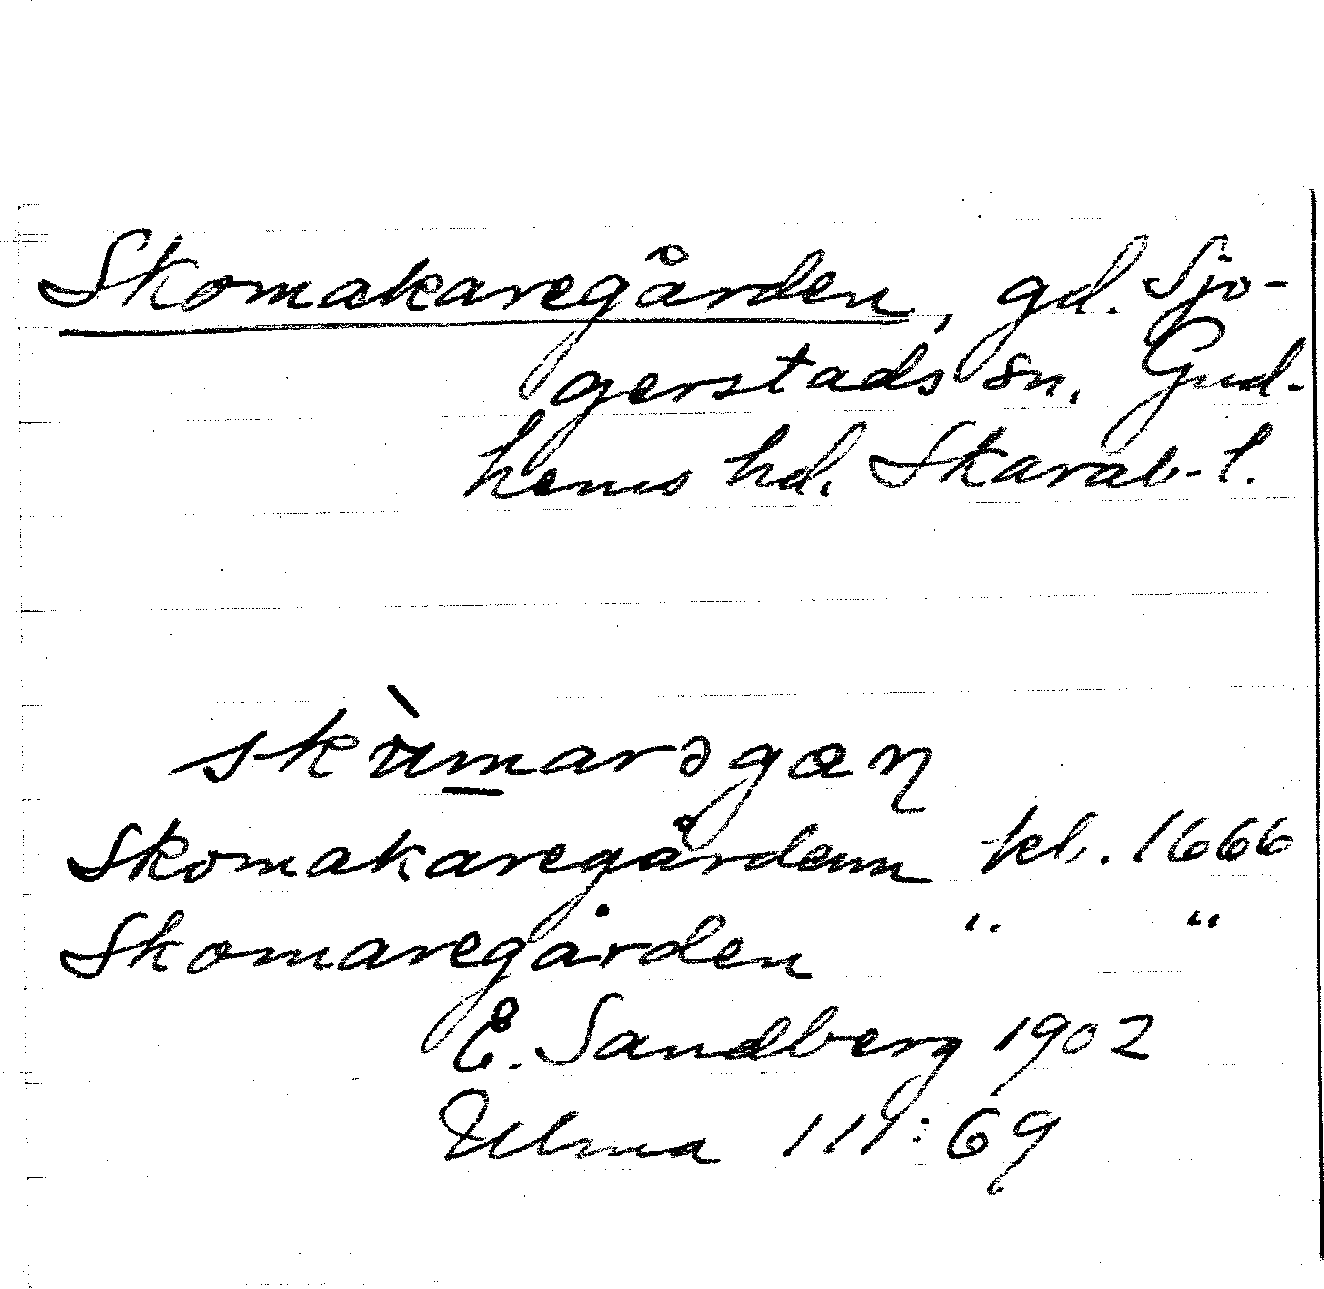 Skomakaregården, gd. Sjo-
gerstads sn. Gud-
hems hd. Skarab-l.
skùmarəgæɳ
Skomakaregårdenn kb. 1666
Skomaregården " "
E. Sandberg 1902
Ulma 111:69